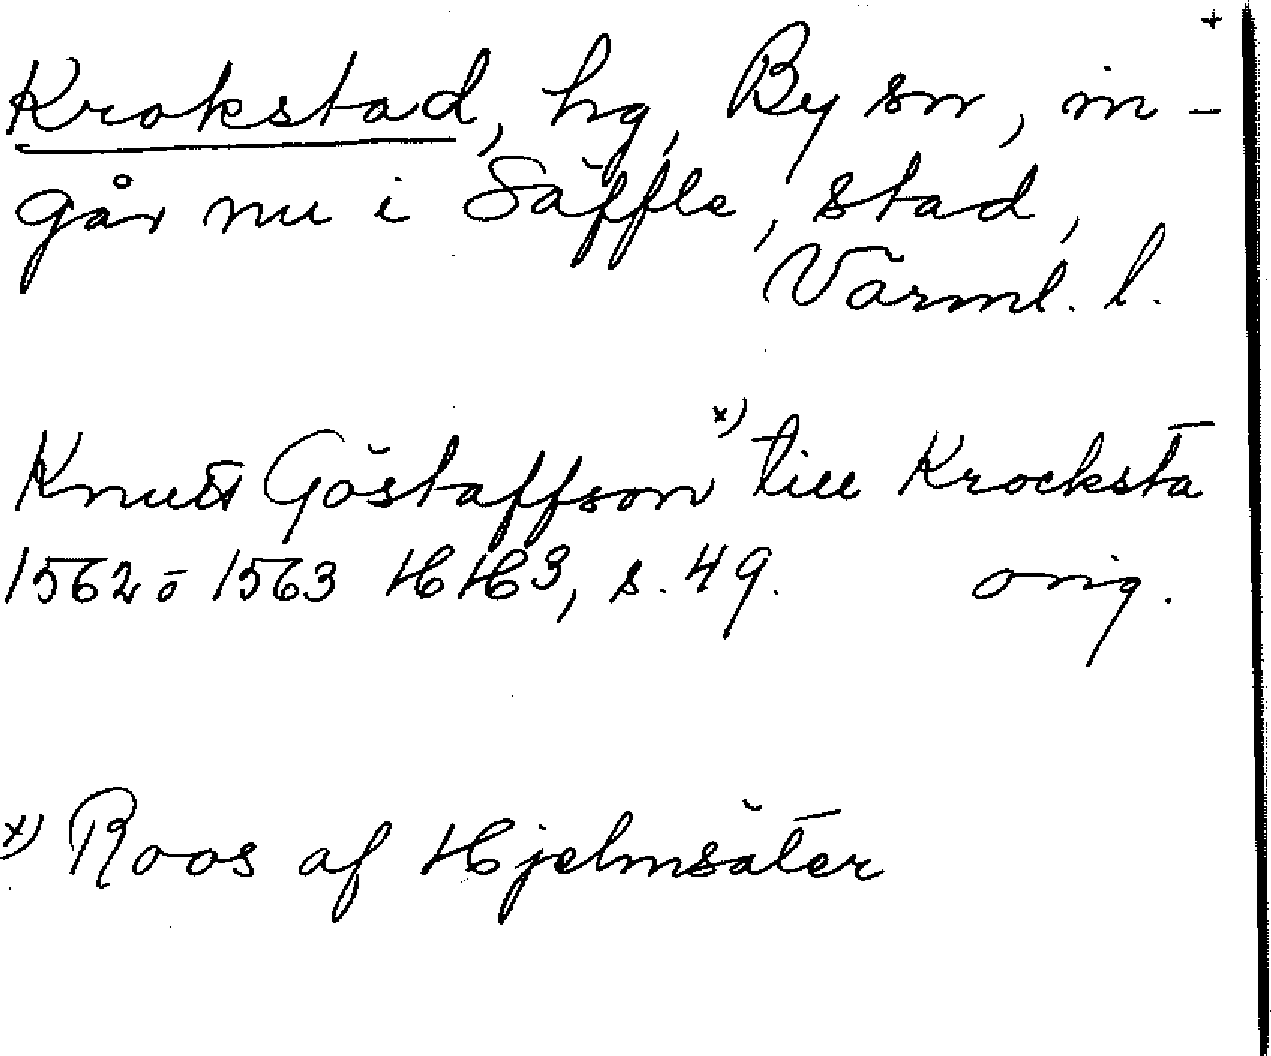 +
Krokstad, hg, By sn, in-
går nu i Säffle, stad,
Värml. l.
Knutt Göstaffson x) till Krocksta
1562 ō 1563 HH3, s. 49. orig.
x) Roos af Hjelmsäter